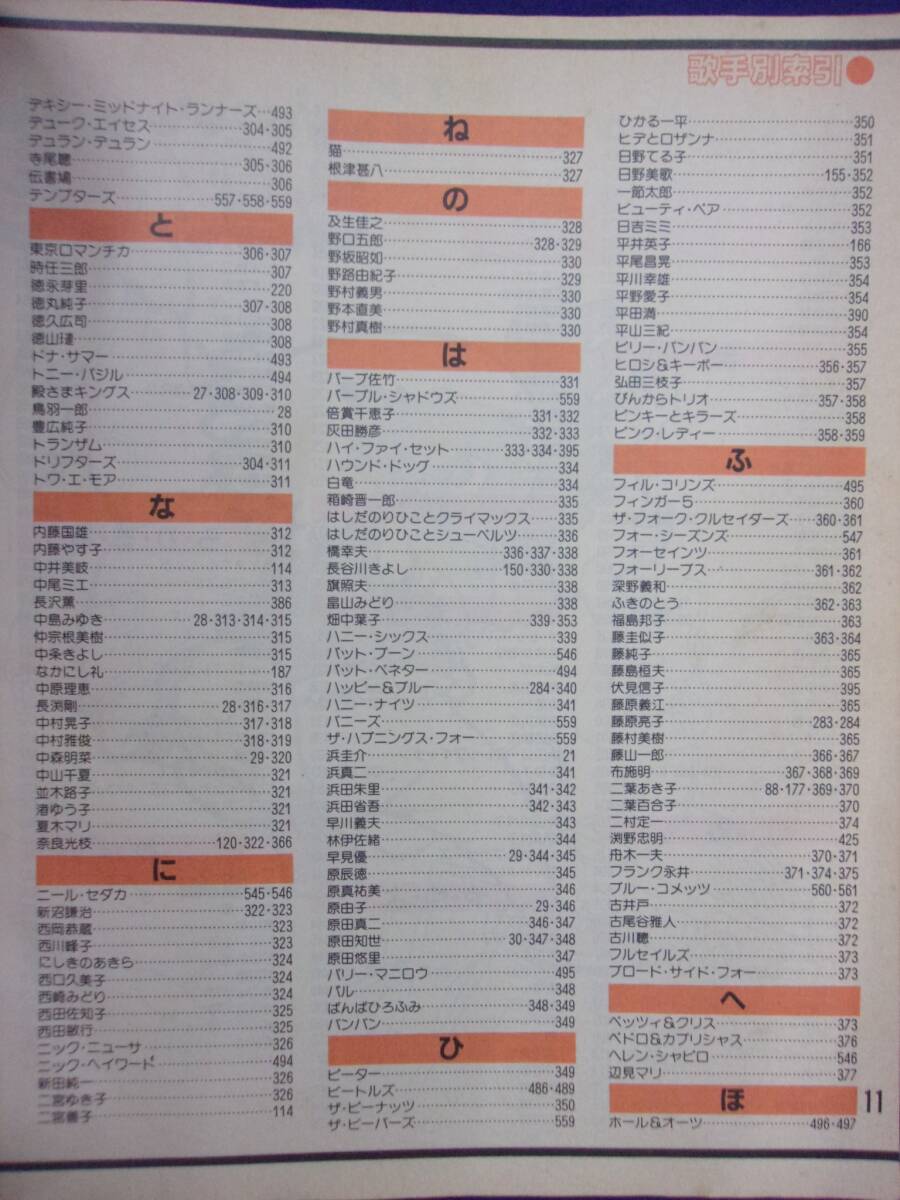 歌手別索引●
デキシー・ミッドナイト・ランナーズ…493
デューク・エイセス…304・305
デュラン・デュラン…492
寺尾聰…305・306
伝書鳩…306
テンプターズ…557・558・559
と
東京ロマンチカ…306・307
時任三郎…307
徳永芽里…220
徳丸純子…307・308
徳久広司…308
徳山璉…308
ドナ・サマー…493
トニー・バジル…494
殿さまキングス…27・308・309・310
鳥羽一郎…28
豊広純子…310
トランザム…310
ドリフターズ…304・311
トワ・エ・モア…311
な
内藤国雄…312
内藤やす子…312
中井美岐…114
中尾ミエ…313
長沢薫…386
中島みゆき…28・313・314・315
仲宗根美樹…315
中条きよし…315
なかにし礼…187
中原理恵…316
長渕剛…28・316・317
中村晃子…317・318
中村雅俊…318・319
中森明菜…29・320
中山千夏…321
並木路子…321
渚ゆう子…321
夏木マリ…321
奈良光枝…120・322・366
に
ニール・セダカ…545・546
新沼謙治…322・323
西岡恭蔵…323
西川峰子…323
にしきのあきら…324
西口久美子…324
西崎みどり…324
西田佐知子…325
西田敏行…325
ニック・ニューサ…326
ニック・ヘイワード…494
新田純一…326
二宮ゆき子…326
二宮善子…114
ね
猫…327
根津甚八…327
の
及生佳之…328
野口五郎…328・329
野坂昭如…330
野路由紀子…329
野村義男…330
野本直美…330
野村真樹…330
は
バーブ佐竹…331
パープル・シャドウズ…559
倍賞千恵子…331・332
灰田勝彦…332・333
ハイ・ファイ・セット…333・334・395
ハウンド・ドッグ…334
白竜…334
箱崎晋一郎…335
はしだのりひことクライマックス…335
はしだのりひことシューベルツ…336
橋幸夫…336・337・338
長谷川きよし…150・330・338
旗照夫…338
畠山みどり…338
畑中葉子…339・353
ハニー・シックス…339
パット・ブーン…546
パット・ベネター…494
ハッピー&ブルー…284・340
ハニー・ナイツ…341
バニーズ…559
ザ・ハプニングス・フォー…559
浜圭介…21
浜真二…341
浜田朱里…341・342
浜田省吾…342・343
早川義夫…343
林伊佐緒…344
早見優…29・344・345
原辰徳…345
原真祐美…346
原由子…29・346
原田真二…346・347
原田知世…30・347・348
原田悠里…347
バリー・マニロウ…495
パル…348
ばんばひろふみ…348・349
バンバン…349
ひ
ピーター…349
ビートルズ…486・489
ザ・ピーナッツ…350
ザ・ビーバーズ…559
ひかる一平…350
ヒデとロザンナ…351
日野てる子…351
日野美歌…155・352
一節太郎…352
ビューティ・ペア…352
日吉ミミ…353
平井英子…166
平尾昌晃…353
平川幸雄…354
平野愛子…354
平田満…390
平山三紀…354
ビリー・バンバン…355
ヒロシ&キーボー…356・357
弘田三枝子…357
ぴんからトリオ…357・358
ピンキーとキラーズ…358
ピンク・レディー…358・359
ふ
フィル・コリンズ…495
フィンガー5…360
ザ・フォーク・クルセイダーズ…360・361
フォー・シーズンズ…547
フォーセインツ…361
フォーリーブス…361・362
深野義和…362
ふきのとう…362・363
福島邦子…363
藤圭似子…363・364
藤純子…365
藤島桓夫…365
伏見信子…395
藤原義江…365
藤原亮子…283・284
藤村美樹…365
藤山一郎…366・367
布施明…367・368・369
二葉あき子…88・177・369・370
二葉百合子…370
二村定一…374
渕野忠明…425
舟木一夫…370・371
フランク永井…371・374・375
ブルー・コメッツ…560・561
古井戸…372
古尾谷雅人…372
古川聰…372
フルセイルズ…373
ブロード・サイド・フォー…373
へ
ベッツィ&クリス…373
ペドロ&カプリシャス…376
ヘレン・シャピロ…546
辺見マリ…377
ほ
ホール&オーツ…496・497
11